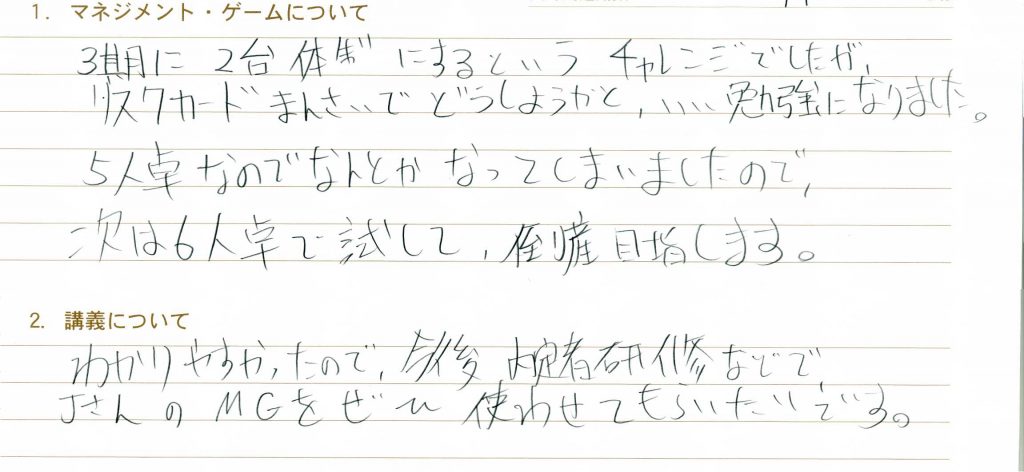 1. マネジメント・ゲームについて
3期に 2台 体制 にするという チャレンジでしたが、
リスクカード まんさいで どうしようかと、いい 勉強になりました。
5人卓なのでなんとか なってしまいましたので、
次は6人卓で試して、倒産目指します。
2. 講義について
わかりやすかったので、今後 内定者研修などで
Jさんの MGをぜひ 使わせてもらいたいです。